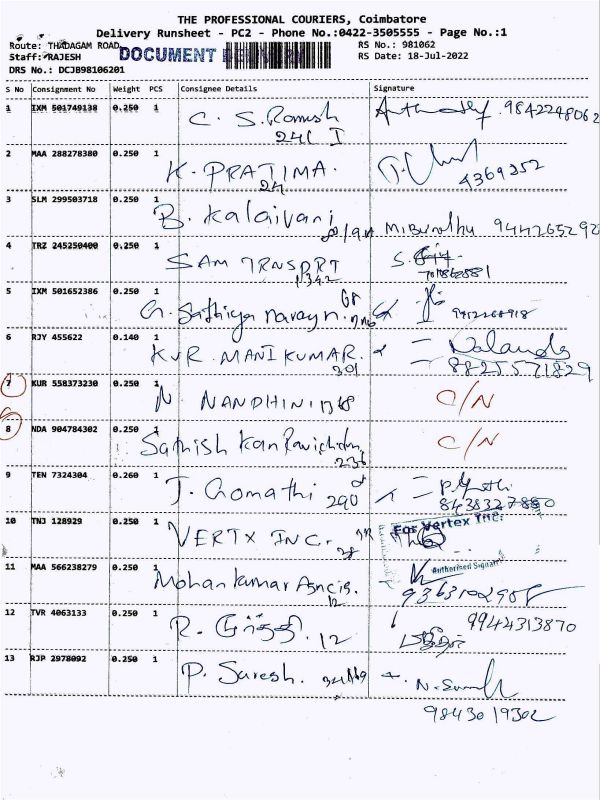 THE PROFESSIONAL COURIERS, Coimbatore
Delivery Runsheet - PC2 - Phone No.:0422-3505555 - Page No.:1
Route: THADAGAM ROAD
RS No.: 981062
Staff: RAJESH
DOCUMENT DELIVERY
RS Date: 18-Jul-2022
DRS No.: DCJB98106201
S No Consignment No Weight PCS Consignee Details Signature
1 IXM 501749138 0.250 1 C. S. Ramesh 9842248062
241 I
2 MAA 288278380 0.250 1 K. PRATIMA.
24 4369252
3 SLM 299503718 0.250 1 B. Kalaivani
9442652920
4 TRZ 245250400 0.250 1 SAM TRNSPRT S.
1342
5 IXM 501652386 0.250 1 G. Sathiya narayn.
6 RJY 455622 0.140 1 KVR MANIKUMAR.
301 8825571829
7 KUR 558373230 0.250 1 N. NANDHINI C/N
8 NDA 904784302 0.250 1 Sathish Kan Ravichdrn C/N
236
9 TEN 7324304 0.260 1 J. Gomathi 290
10 TNJ 128929 0.250 1 VERTX INC. For Vertex Inc.
28
Authorised Signatory
11 MAA 566238279 0.250 1 Mohankumar Agncis.
12 9363102908
12 TVR 4063133 0.250 1 R. 12 9944313870
13 RJP 2978092 0.250 1 P. Suresh.
9843019302